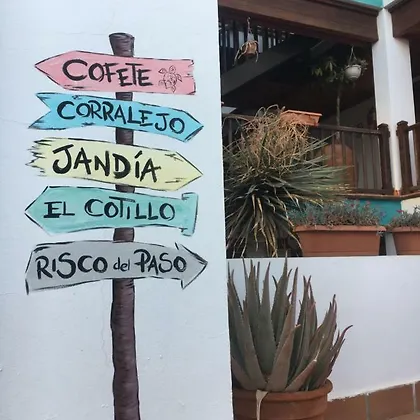 COFETE
CORRALEJO
JANDÍA
EL COTILLO
RISCO del PASO